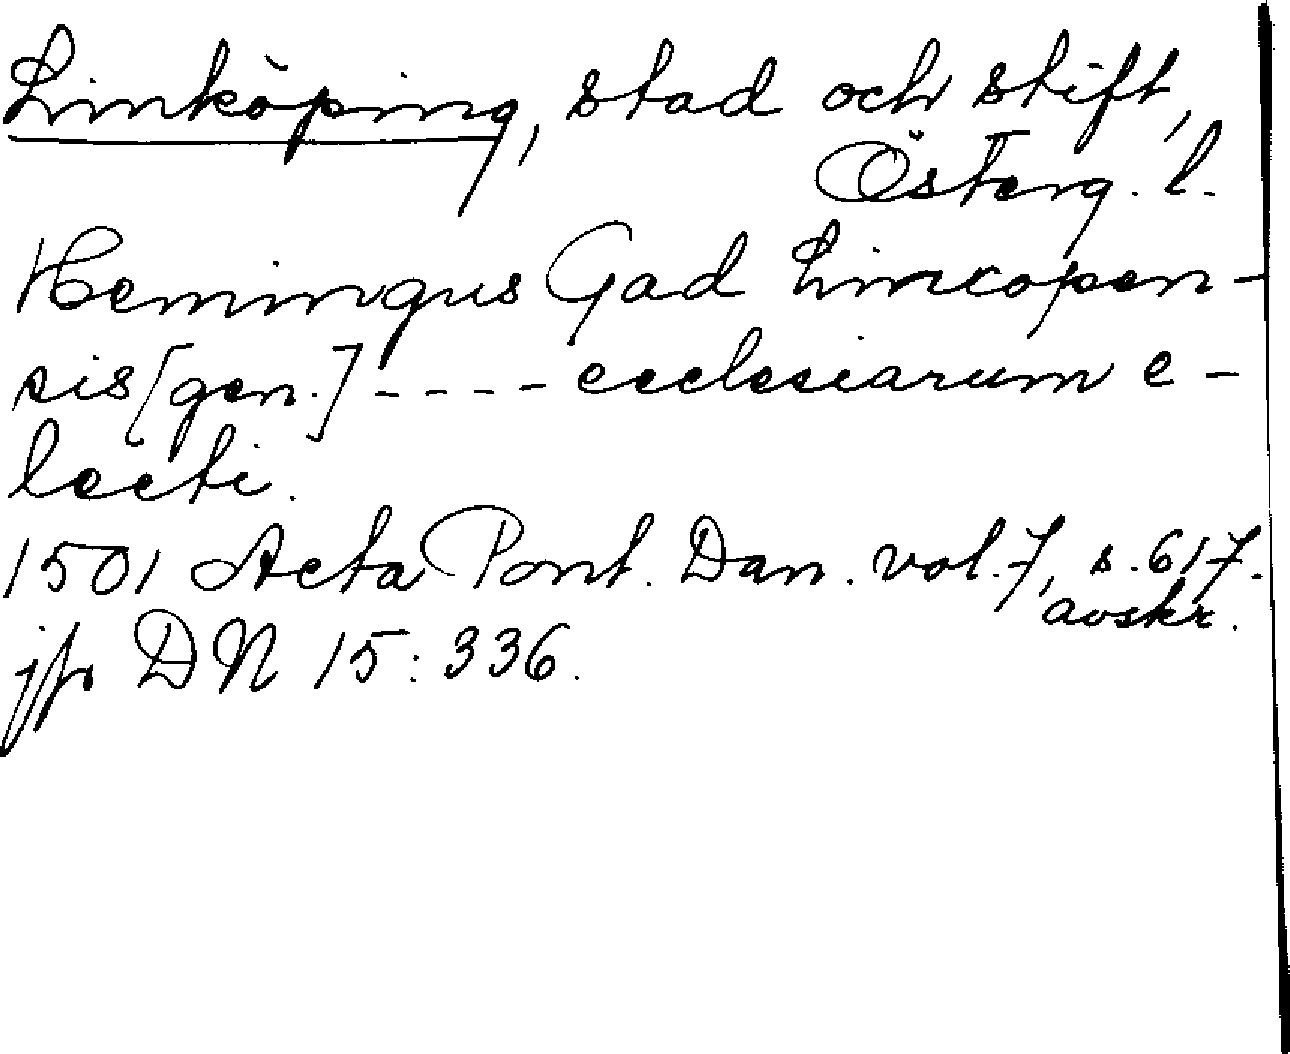 Linköping, stad och stift,
Österg. l.
Hemingus Gad Lincopen-
sis [gen.] - - - - ecclesiarum e-
lecti.
1501 Acta Pont. Dan. vol. 7, s. 617.
avskr.
jfr DN 15: 336.